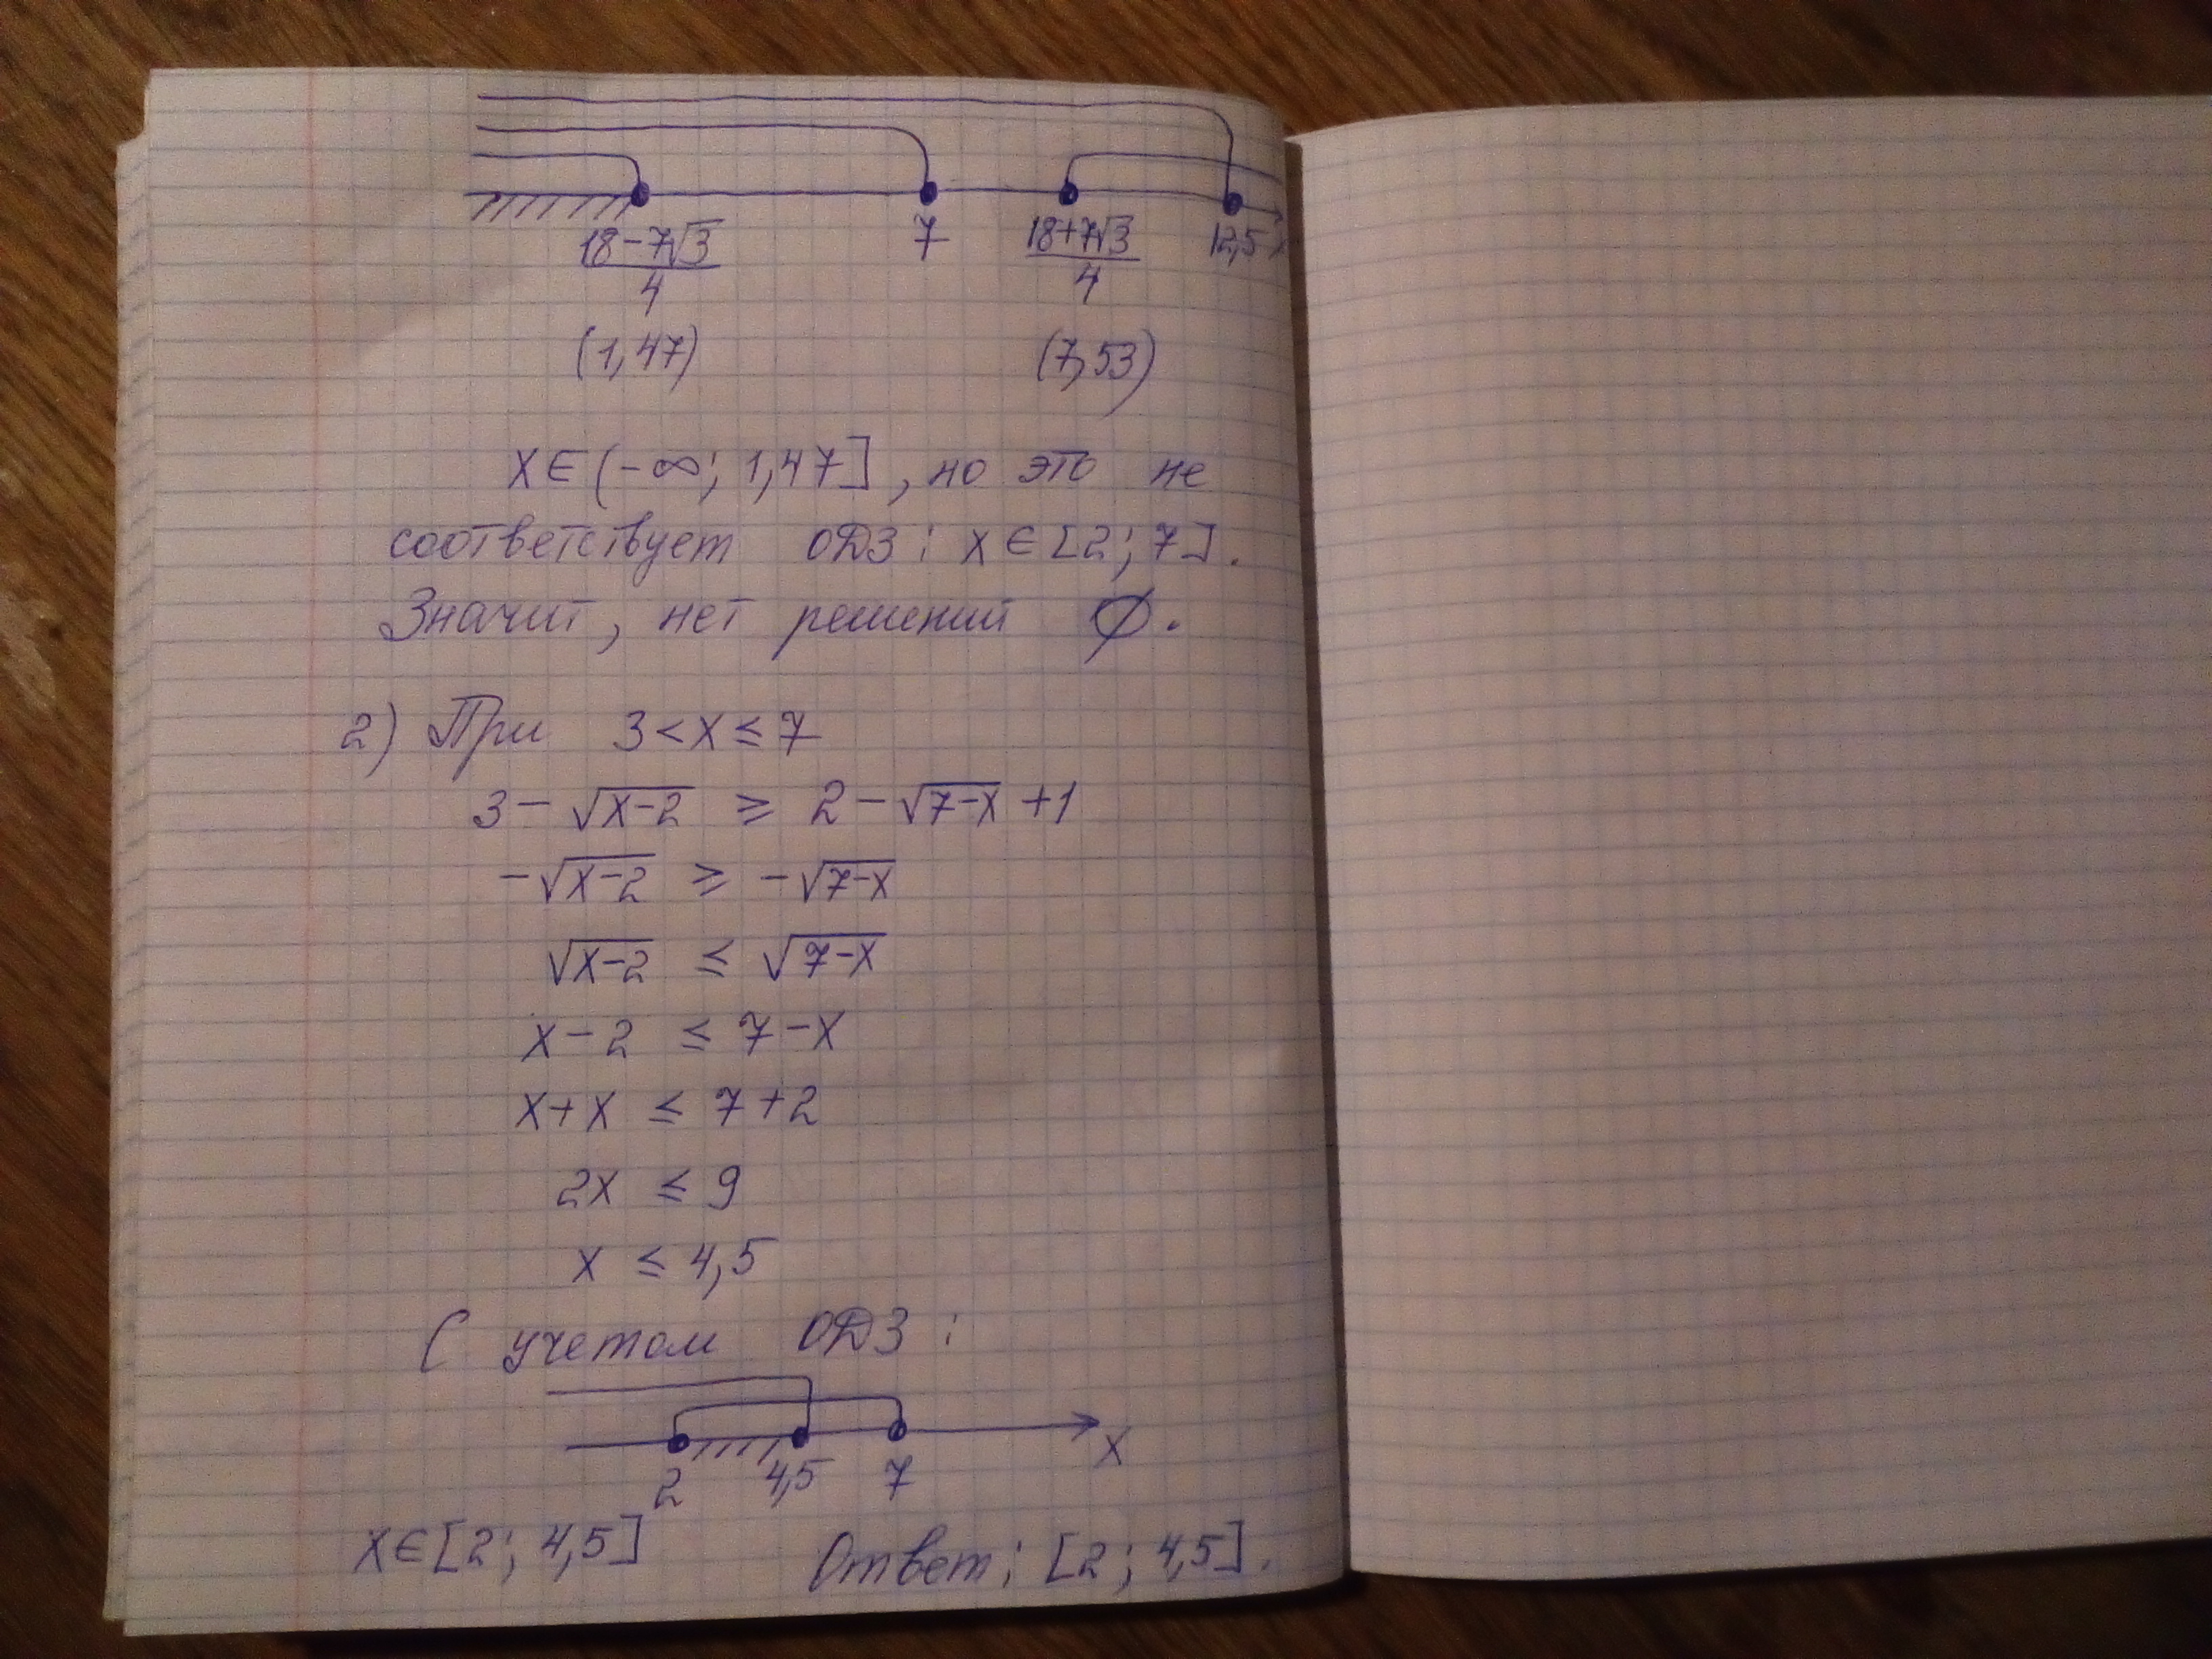 18-7√3/4 7 18+7√3/4 12,5
(1,47) (7,53)
x∈(-∞; 1,47], но это не
соответствует ОДЗ: x∈[2; 7].
Значит, нет решений ∅.
2) При 3<x≤7
3-√x-2 ≥ 2-√7-x +1
-√x-2 ≥ -√7-x
√x-2 ≤ √7-x
x-2 ≤ 7-x
x+x ≤ 7+2
2x ≤ 9
x ≤ 4,5
С учетом ОДЗ:
x
2 4,5 7
x∈[2; 4,5] Ответ: [2; 4,5].